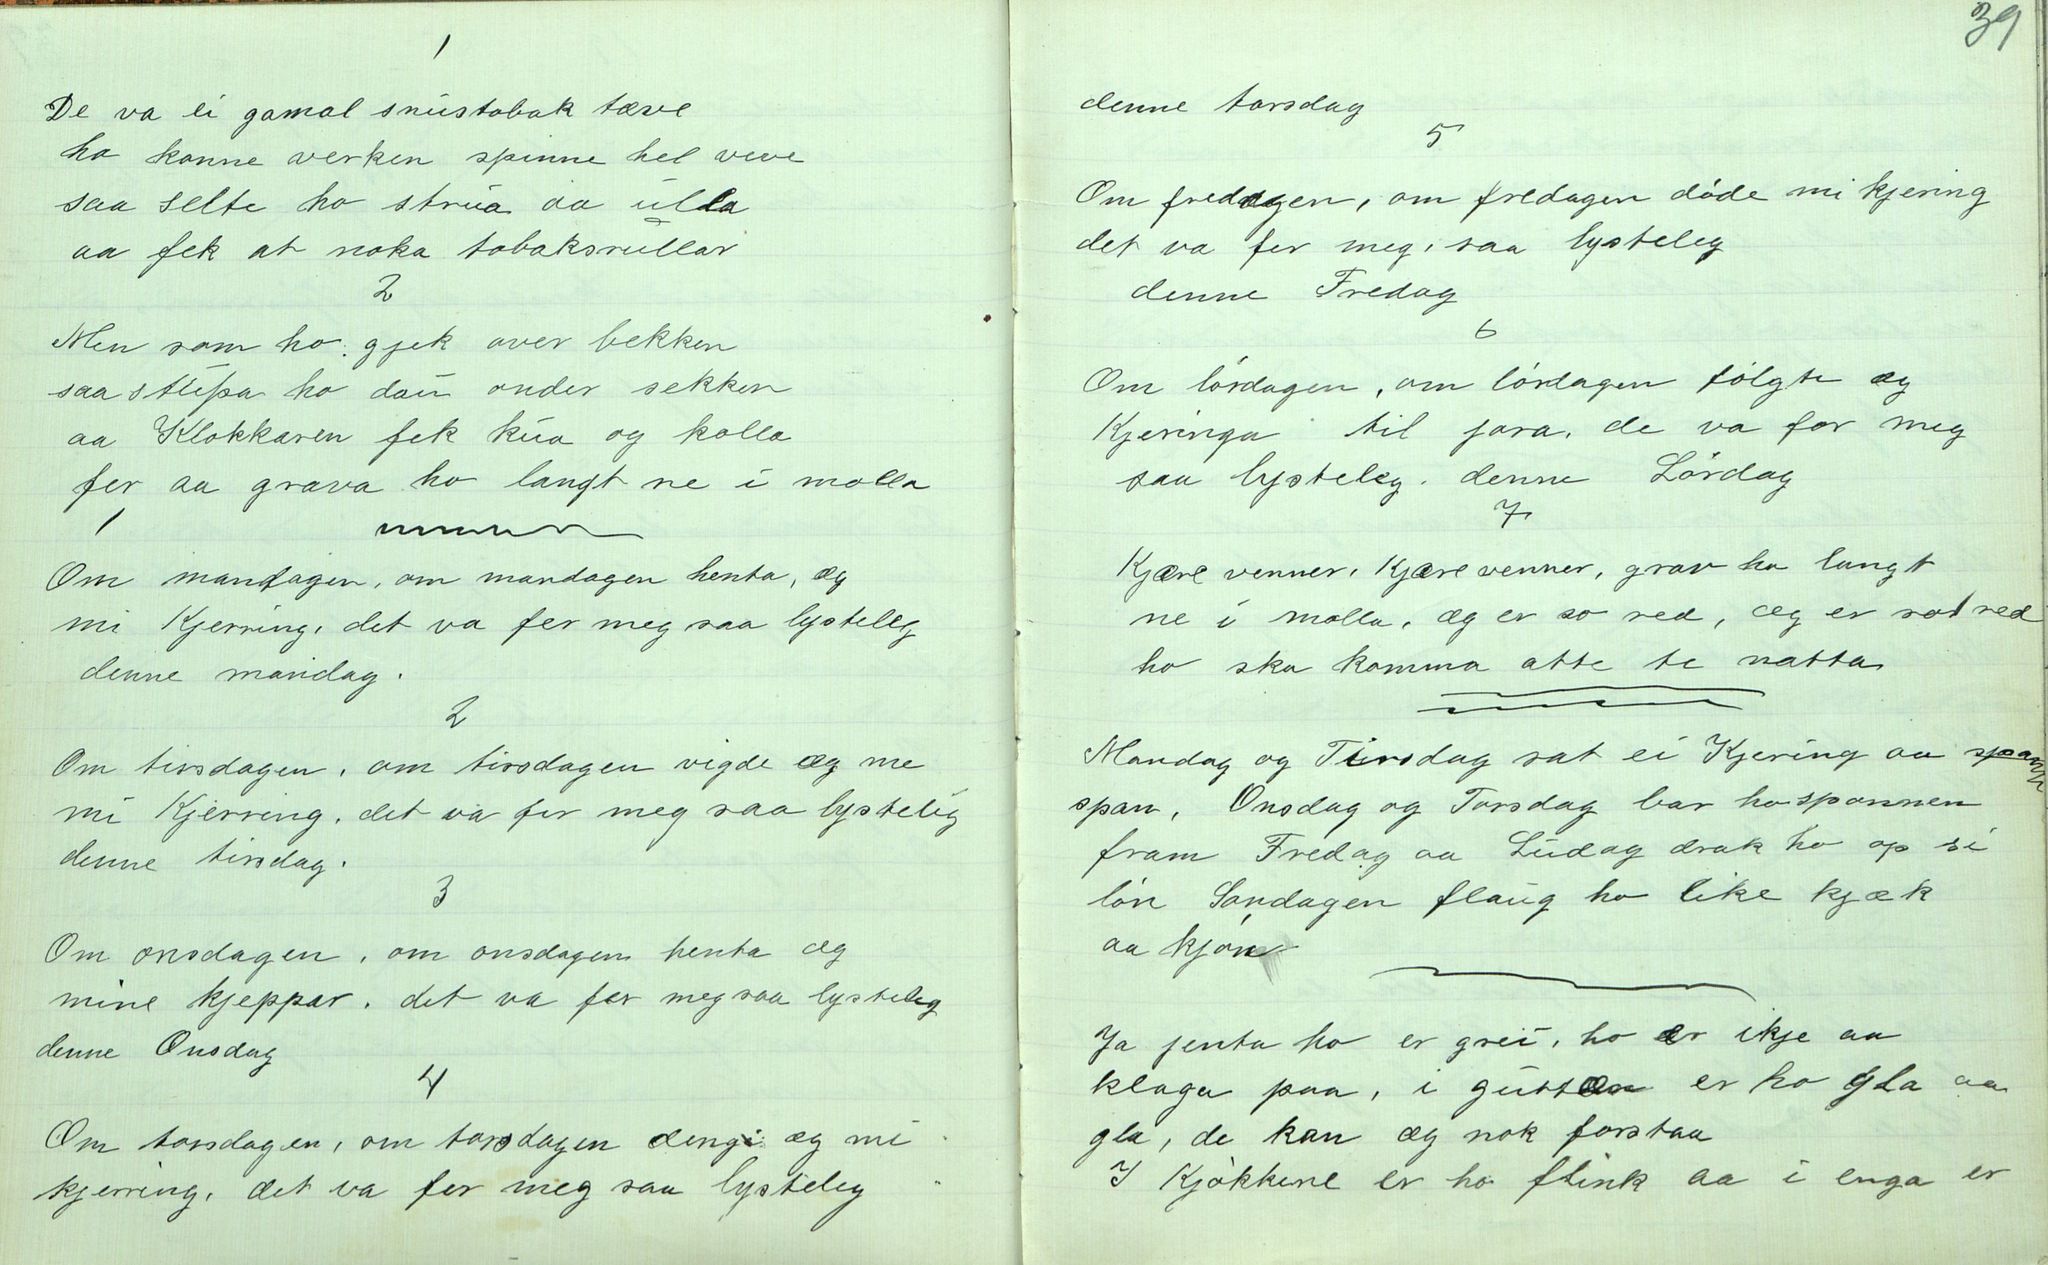 1
De va ei gamal snustobak tæve
ho konne verken spinne hel veve
saa selte ho strua aa ulla
aa fek at noka tobaksrullar
2
Men som ho gjek over bekken
saa stupa ho dau onder sekken
aa Klokkaren fek kua og kolla
fer aa grava ho langt ne i molla
1
Om mandagen, om mandagen henta, æg
mi Kjerring, det va fer meg saa lysteleg
denne mandag.
2
Om tirsdagen, om tirsdagen vigde æg me
mi Kjerring, det va fer meg saa lysteleg
denne tirsdag.
3
Om onsdagen, om onsdagen henta æg
mine kjeppar, det va fer meg saa lysteleg
denne Onsdag
4
Om torsdagen, om torsdagen dengi æg mi
kjerring, det va fer meg saa lysteleg
39
denne torsdag
5
Om fredagen, om fredagen døde mi kjering
det va fer meg, saa lysteleg
denne Fredag
6
Om lørdagen, om lørdagen følgte æg
Kjeringa til jora, de va for meg
saa lysteleg, denne Lørdag
7
Kjære venner, Kjære venner, grav ho langt
ne i molla, æg er so red, æg er so red
ho ska komma atte te natta
Mandag og Tirsdag sat ei Kjering aa
span, Onsdag og Torsdag bar ho spannen
fram Fredag aa Ludag drak ho op si
løn Sondagen flaug ho like kjæk
aa kjøn
Ja jenta ho er grei, ho er ikje aa
klaga paa, i gutten er ho gla aa
gla, de kan æg nok forstaa
I Kjøkkene er ho flink aa i enga er